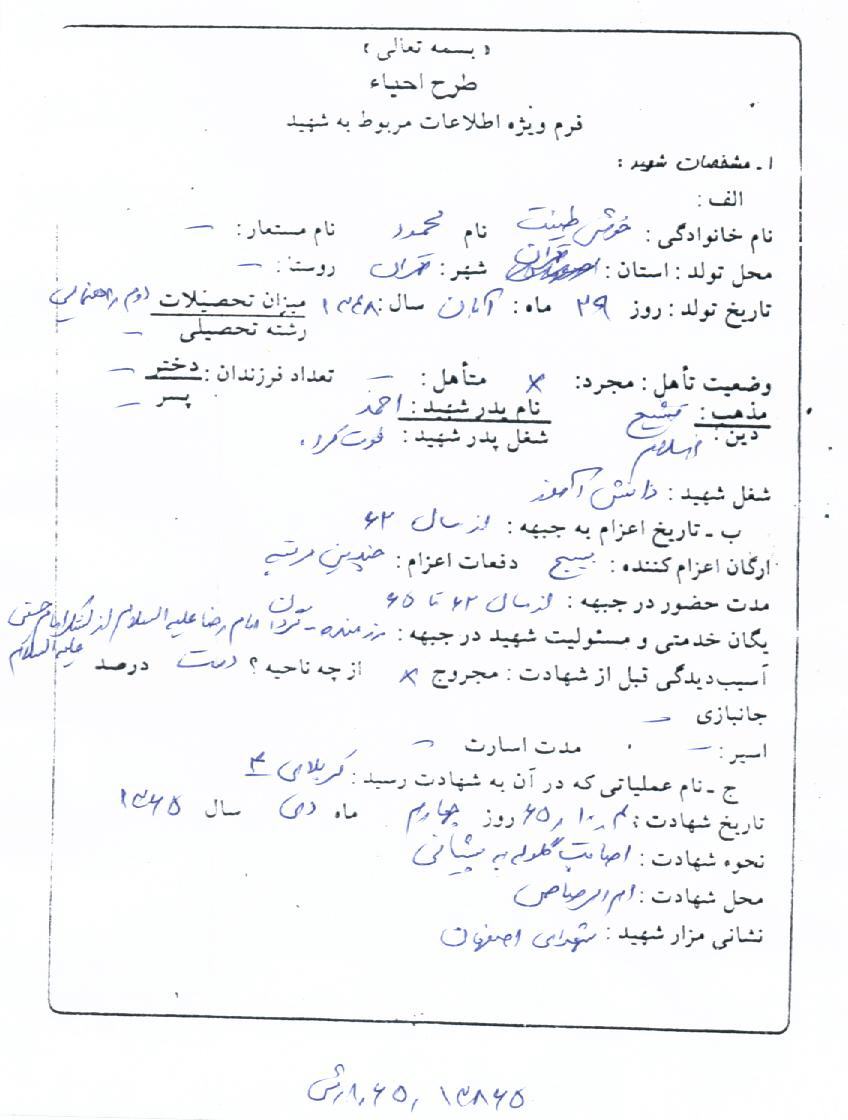 « بسمه تعالی »
طرح احیاء
فرم ویژه اطلاعات مربوط به شهید
۱ـ مشخصات شهید :
الف :
نام خانوادگی : خوش طینت نام محمود نام مستعار : —
محل تولد : استان : تهران شهر : تهران روستا : —
تاریخ تولد : روز ۲۹ ماه : آبان سال : ۱۳۴۸ میزان تحصیلات دوم راهنمایی
رشته تحصیلی —
وضعیت تأهل : مجرد : × متأهل : — تعداد فرزندان : دختر —
پسر —
مذهب : تشیع نام پدر شهید : احمد
دین : اسلام شغل پدر شهید : فوت کرده
شغل شهید : دانش آموز
ب ـ تاریخ اعزام به جبهه : از سال ۶۲
ارگان اعزام کننده : بسیج دفعات اعزام : چندین مرتبه
مدت حضور در جبهه : از سال ۶۲ تا ۶۵
یگان خدمتی و مسئولیت شهید در جبهه : رزمنده - گردان امام رضا علیه السلام از لشکر امام حسین علیه السلام
آسیب‌دیدگی قبل از شهادت : مجروح × از چه ناحیه ؟ دست درصد
جانبازی —
اسیر : — مدت اسارت —
ج ـ نام عملیاتی که در آن به شهادت رسید : کربلای ۴
تاریخ شهادت : ۴ر۱۰ر۶۵ روز چهارم ماه دی سال ۱۳۶۵
نحوه شهادت : اصابت گلوله به پیشانی
محل شهادت : ام الرصاص
نشانی مزار شهید : شهدای اصفهان